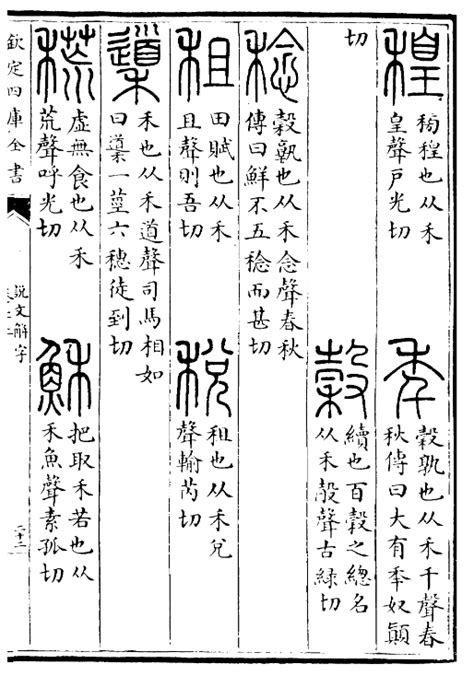 穔
穔也从禾
皇聲戶光切
秊
穀孰也从禾千聲春
秋傳曰大有秊奴顛
切
穀
續也百穀之總名
从禾㱿聲古緑切
稔
穀孰也从禾念聲春秋
傳曰鮮不五稔而甚切
租
田賦也从禾
且聲則吾切
稅
租也从禾兌
聲輸芮切
䆃
禾也从禾道聲司馬相如
曰䆃一莖六穗徒到切
虛無食也从禾
荒聲呼光切
穌
把取禾若也从
禾魚聲素孤切
欽定四庫全書
説文解字
二十二